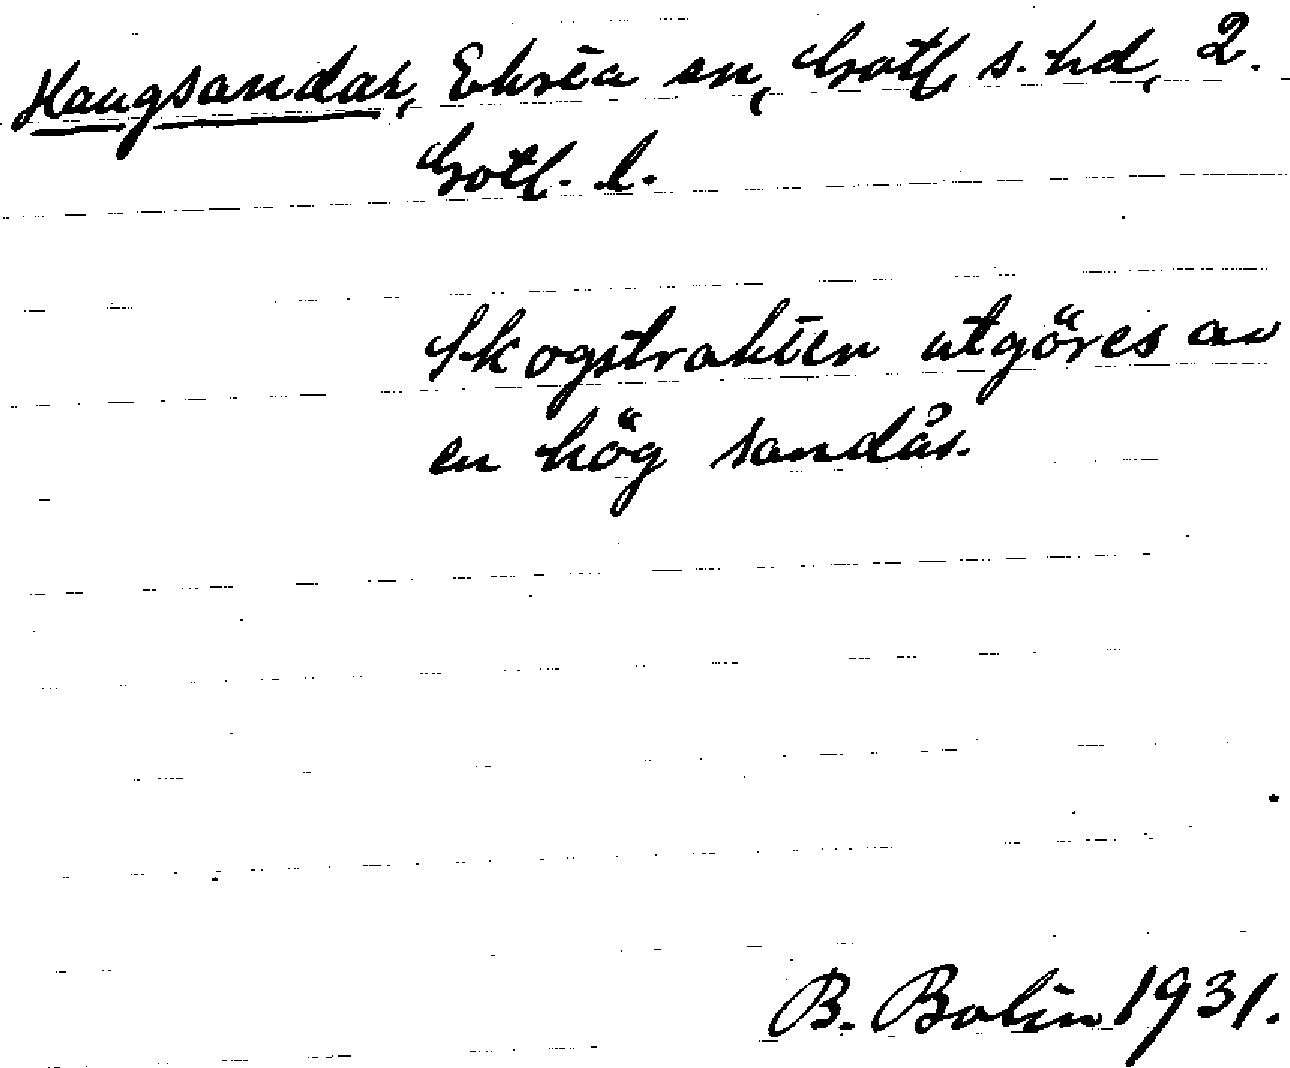 Haugsandar, Eksta sn, Gotl. s. hd, 2.
Gotl. l.
Skogstrakten utgöres av
en hög sandås.
B. Bolin 1931.